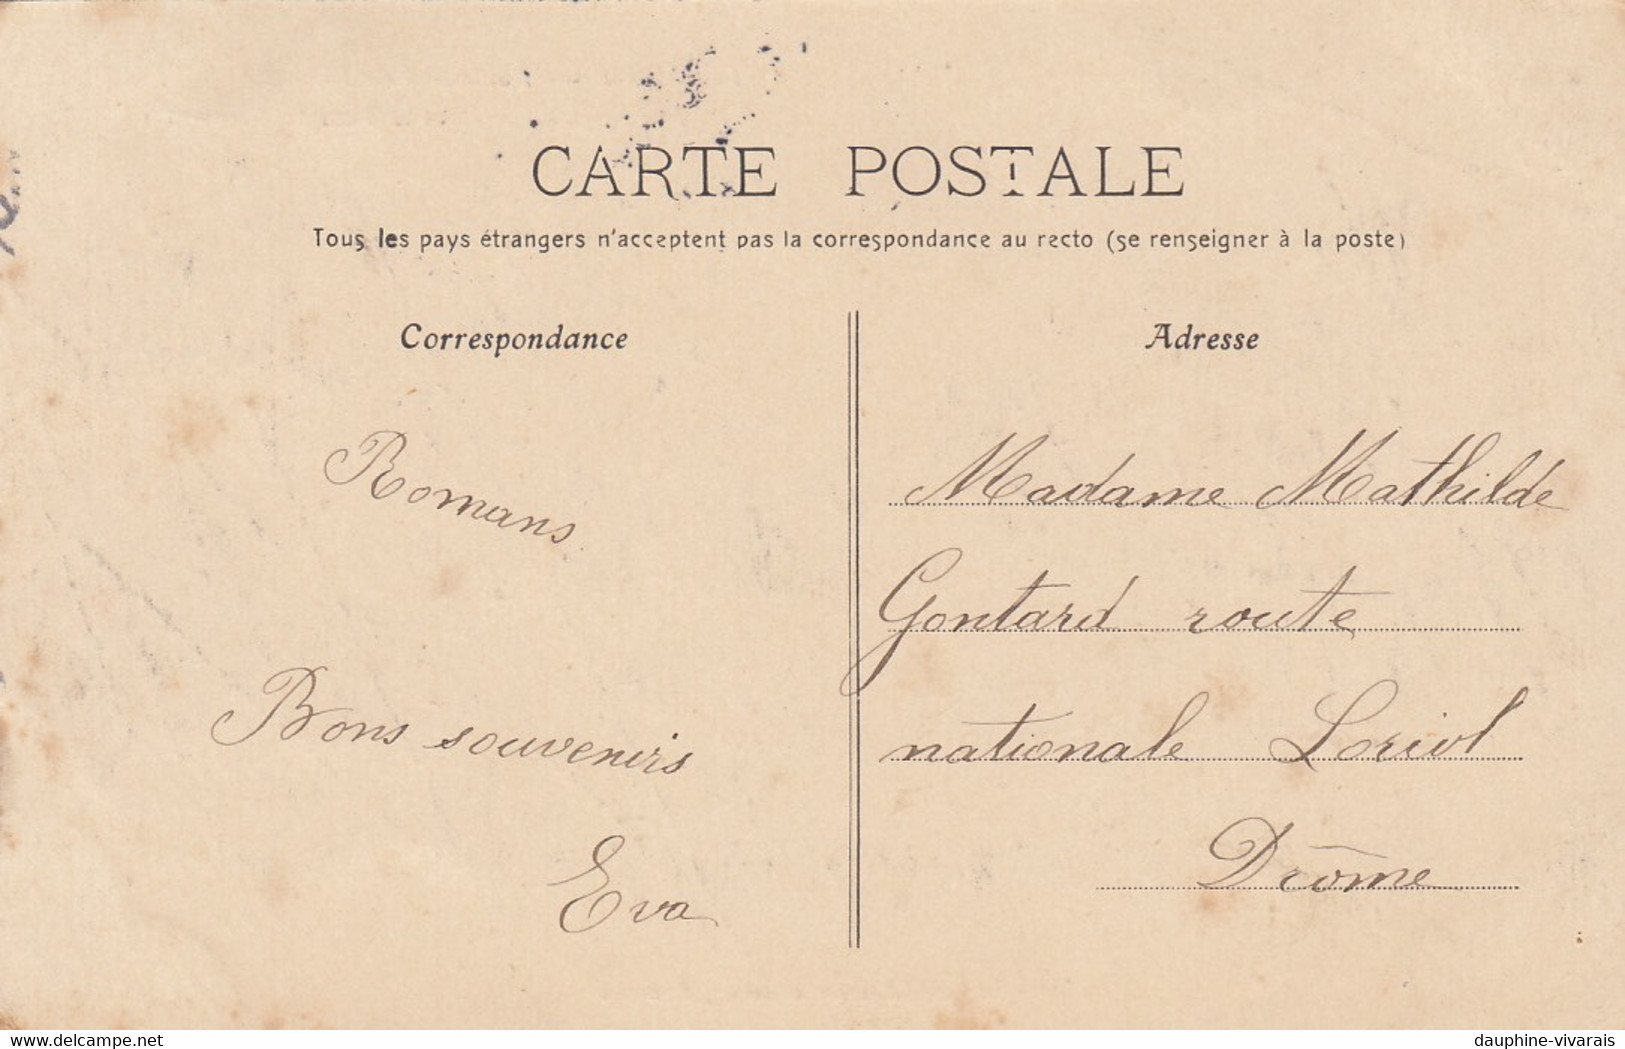 CARTE POSTALE
Tous les pays étrangers n'acceptent pas la correspondance au recto (se renseigner à la poste)
Correspondance
Romans
Bons souvenirs
Eva
Adresse
Madame Mathilde
Gontard route
nationale Loriol
Drôme
delcampe.net
dauphine-vivarais